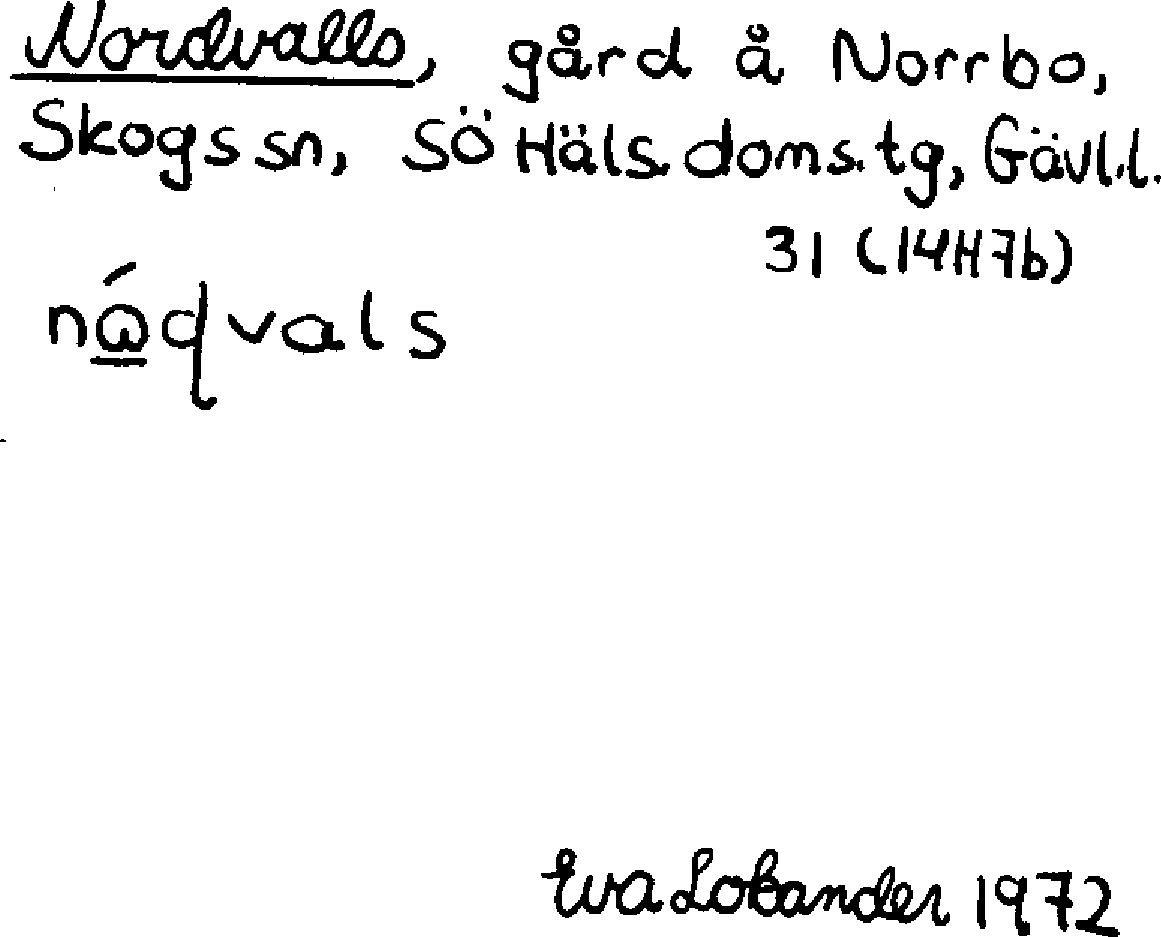 Nordvalls, gård å Norrbo,
Skogs sn, SÖ Häls. doms. tg, Gävl.l.
31 (14H7b)
Eva Lobander 1972